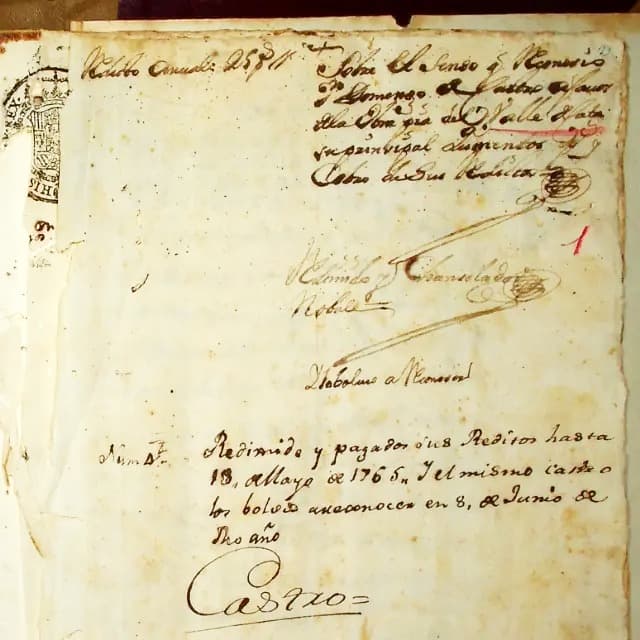 Redito Anual: 25 p.s
Sobre El Senso q.e Reconosio
D.n Domingo de Castro a favor
de la Obra pia de Valle
su principal Quinientos p.s y
Cobro de sus Reditos
1
Redimido y Chanselado
No bale
Debolvio a Reconoser
Núm 4.
Redimido y pagados sus Reditos hasta
18, de Mayo de 1765,, Y el mismo Castro
los bolvio a reconocer en 8, de Junio de
dho año
Castro=